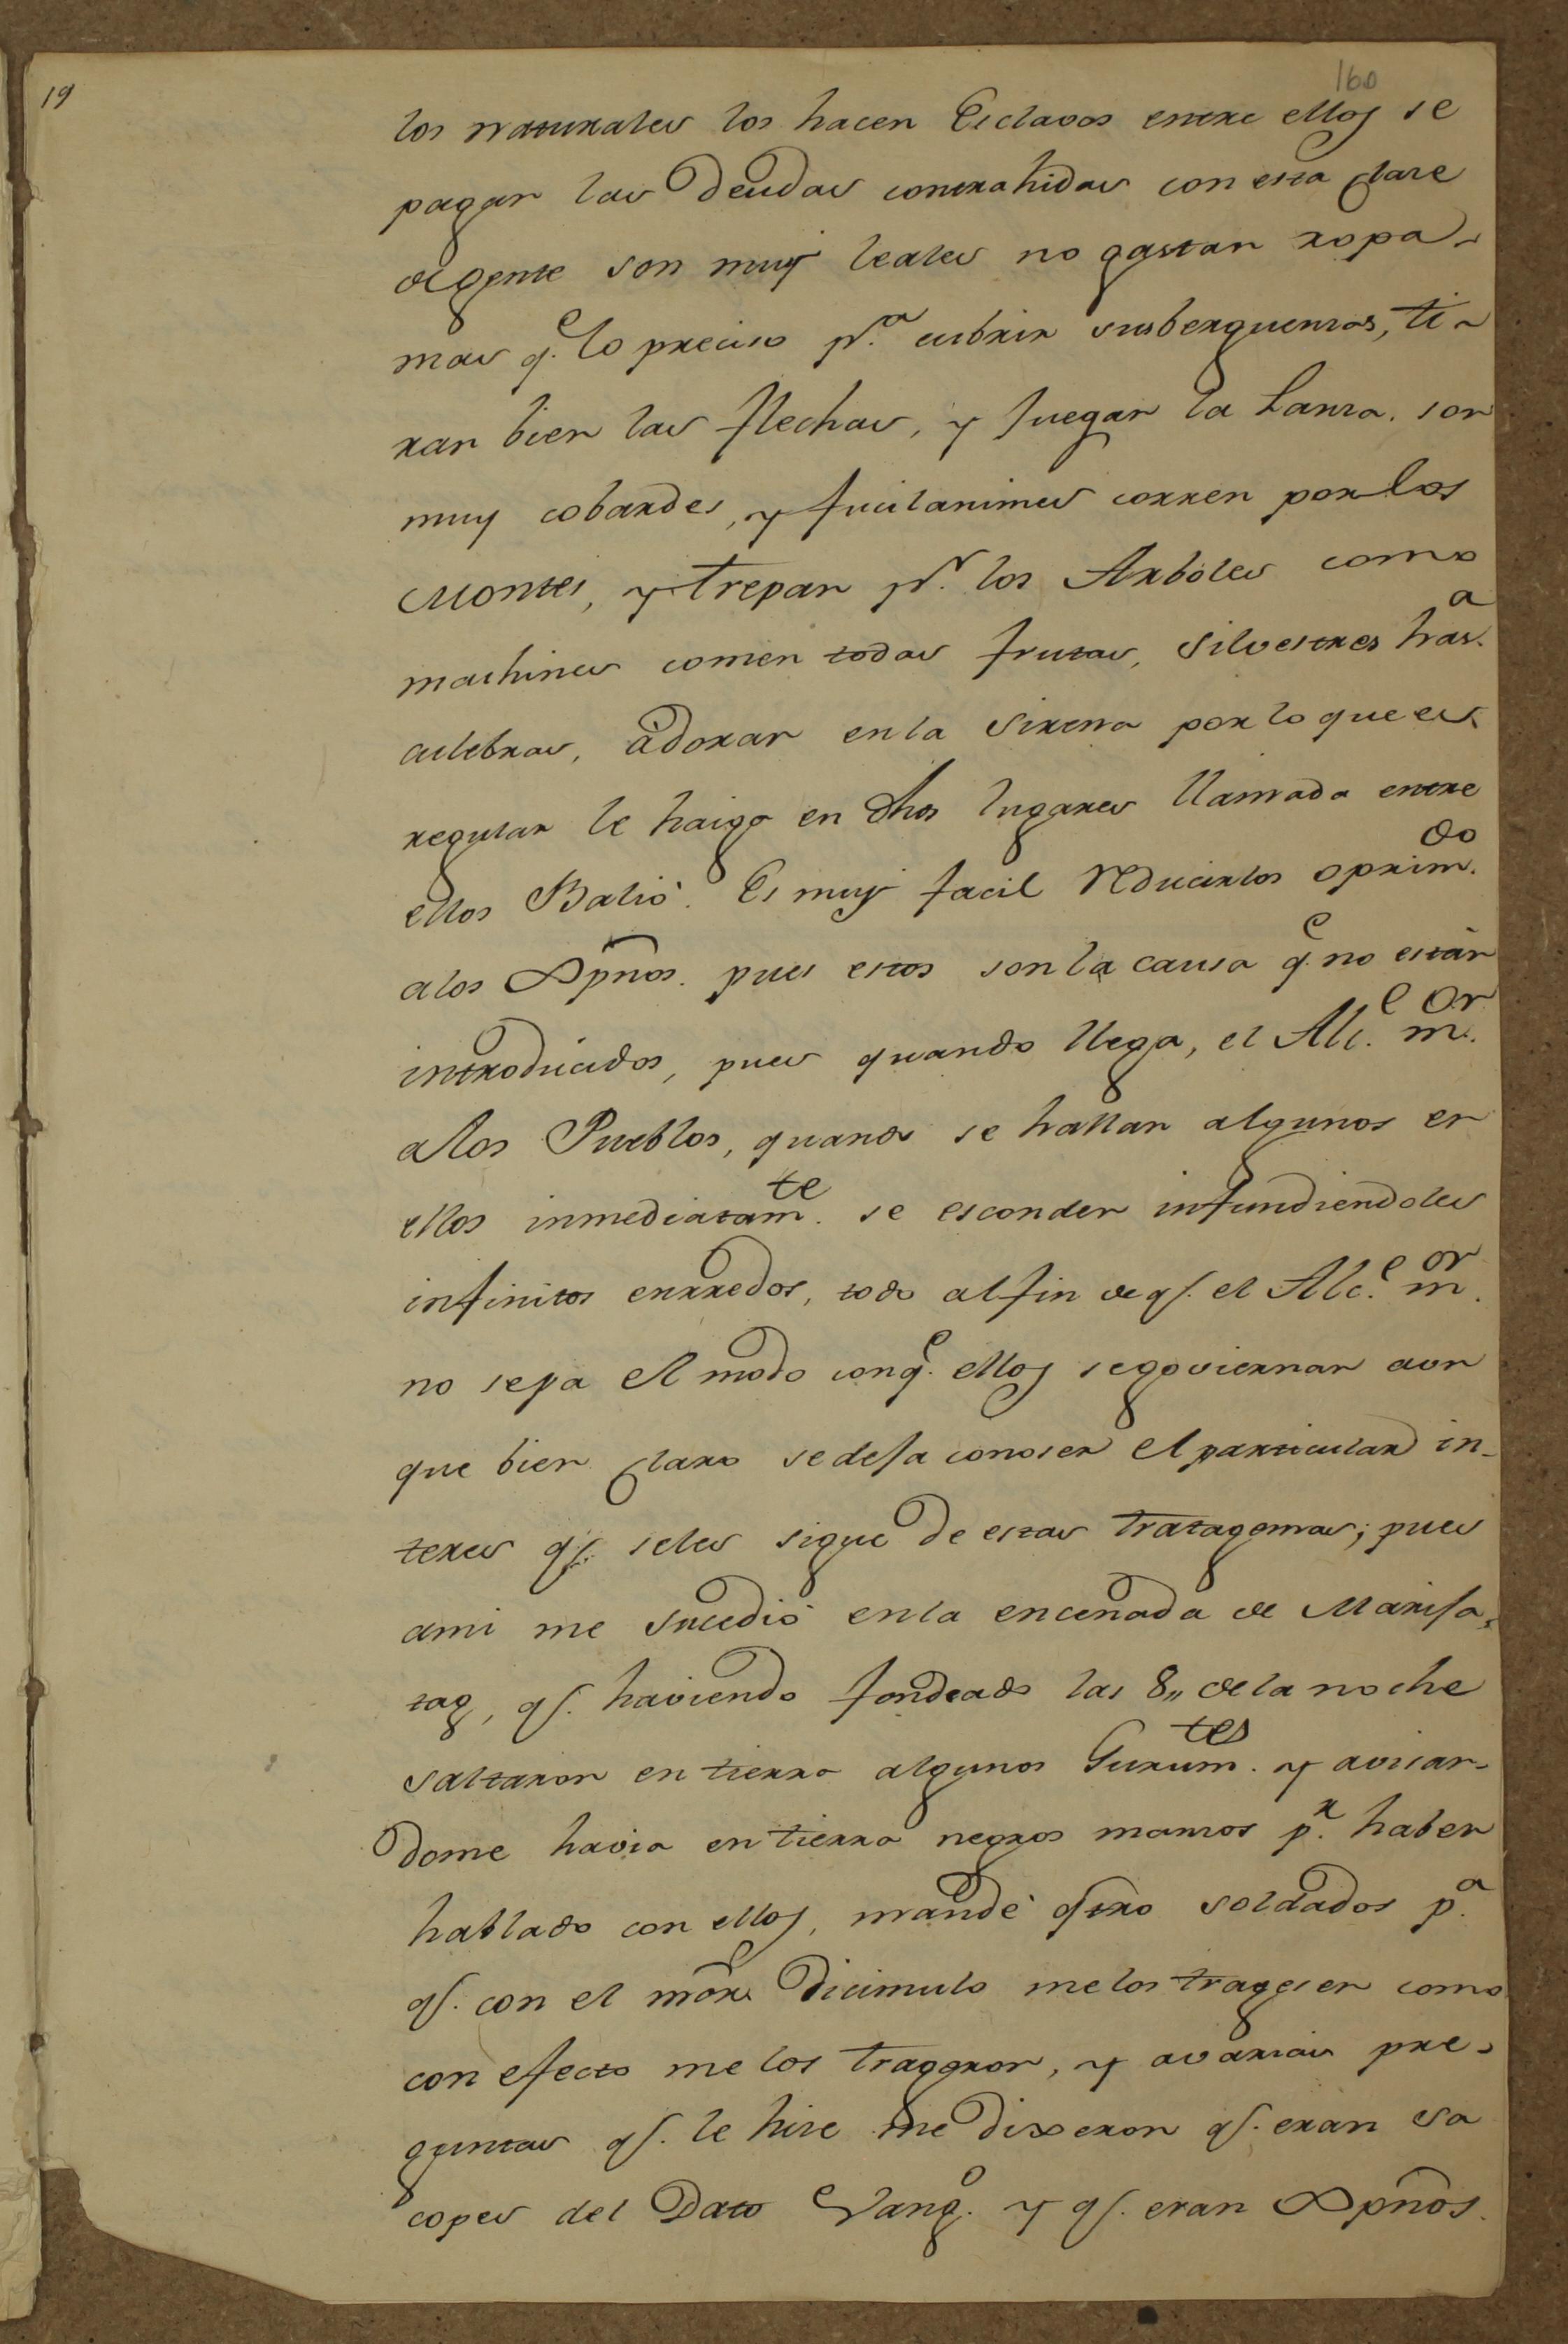 160
19
los naturales los hacen Esclavos entre ellos se
pagan las deudas contrahidas con esta clase
de gente son muy leales no gastan ropa
mas q.e lo preciso p.a cubrir susberguensas, ti-
ran bien las flechas, y juegan la Lanza. son
muy cobardes, y pucilanimes corren por los
Montes, y trepan p.r los Arboles como
machines comen todas frutas, silvestres has.a
culebras, àdoran enla Sirena por lo que es
regular le haiga en dhos lugares llamada entre
ellos Balió. Es muy facil reducirlos oprim.do
alos Xpños. pues estos son la causa q.e no están
introducidos, pues quando llega, el Alc.e m.or
alos Pueblos, quando se hallan algunos en
ellos inmediatam.te se esconden infundiendoles
infinitos enrredos, todo alfin de q.e el Alc.e m.or
no sepa el modo conq.e ellos segoviernan aun
que bien claro sedeja conoser el particular in-
teres q.e seles sigue de estas tratagemas; pues
ami me sucedió enla encenada de Marija-
tag, q.e haviendo fondeado las 8,, dela noche
saltaron en tierra algunos Gurum.tes y avisan-
dome havia en tierra negros mansos p.r haber
hablado con ellos, mandé qtro soldados p.a
q.e con el mõr. dicimulo melos tragesen como
con efecto me los trageron, y avarias pre-
guntas q.e le hise me dixeron q.e eran sa
copes del Dato Vang.o y q.e eran Xpños.